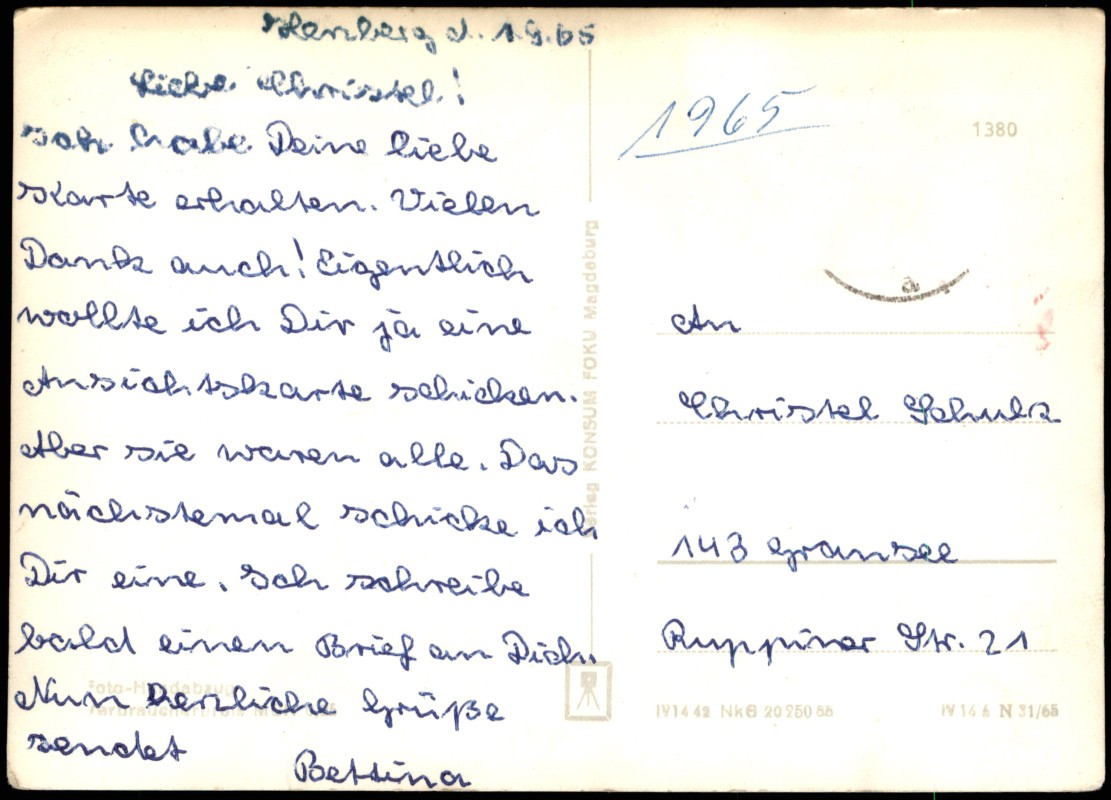 d. 1.9.65
Liebe Christel!
Ich habe Deine liebe
Karte erhalten. Vielen
Dank auch! Eigentlich
wollte ich Dir ja eine
Ansichtskarte schicken.
Aber sie waren alle. Das
nächstemal schicke ich
Dir eine. Ich schreibe
bald einen Brief an Dich.
Nun herzliche Grüße
sendet
Bettina
Verlag KONSUM FOKU Magdeburg
1965
1380
a
An
Christel Schulz
143 Gransee
Ruppiner Str. 21
IV 14 42 Nk6 20250 65
IV 14 6 N 31/65